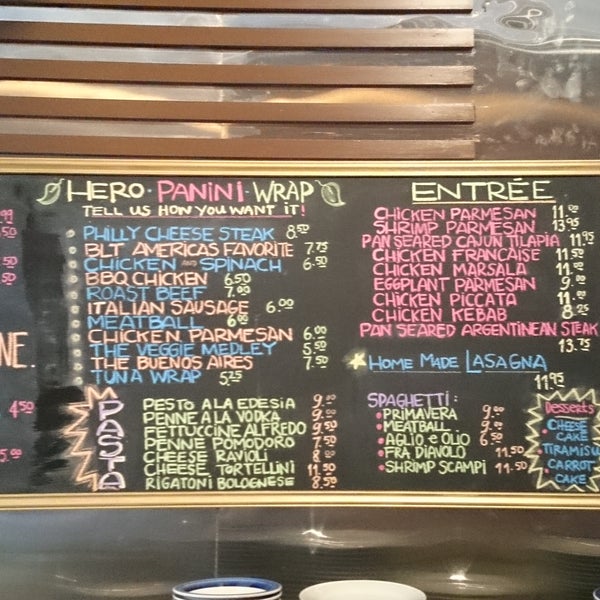 .99
.50
.50
.50
NE.
4.50
5.00
HERO · PANINI · WRAP
TELL US HOW YOU WANT IT!
PHILLY CHEESE STEAK 8.50
BLT AMERICAS FAVORITE 7.75
CHICKEN AND SPINACH 6.50
BBQ CHICKEN 6.50
ROAST BEEF 7.00
ITALIAN SAUSAGE 6.00
MEATBALL 6.00
CHICKEN PARMESAN 6.00
THE VEGGIE MEDLEY 5.50
THE BUENOS AIRES 7.50
TUNA WRAP 5.25
PASTA
PESTO A LA EDESIA 9.00
PENNE A LA VODKA 9.00
FETTUCCINE ALFREDO 9.50
PENNE POMODORO 7.50
CHEESE RAVIOLI 8.00
CHEESE TORTELLINI 11.50
RIGATONI BOLOGNESE 8.50
ENTRÉE
CHICKEN PARMESAN 11.00
SHRIMP PARMESAN 13.95
PAN SEARED CAJUN TILAPIA 11.95
CHICKEN FRANCAISE 11.50
CHICKEN MARSALA 11.00
EGGPLANT PARMESAN 9.00
CHICKEN PICCATA 11.00
CHICKEN KEBAB 8.25
PAN SEARED ARGENTINEAN STEAK
13.75
HOME MADE LASAGNA
11.95
SPAGHETTI:
• PRIMAVERA 9.00
• MEATBALL 9.00
• AGLIO e OLIO 6.50
• FRA DIAVOLO 11.50
• SHRIMP SCAMPI 11.50
Desserts
• CHEESE
CAKE
• TIRAMISU
• CARROT
CAKE